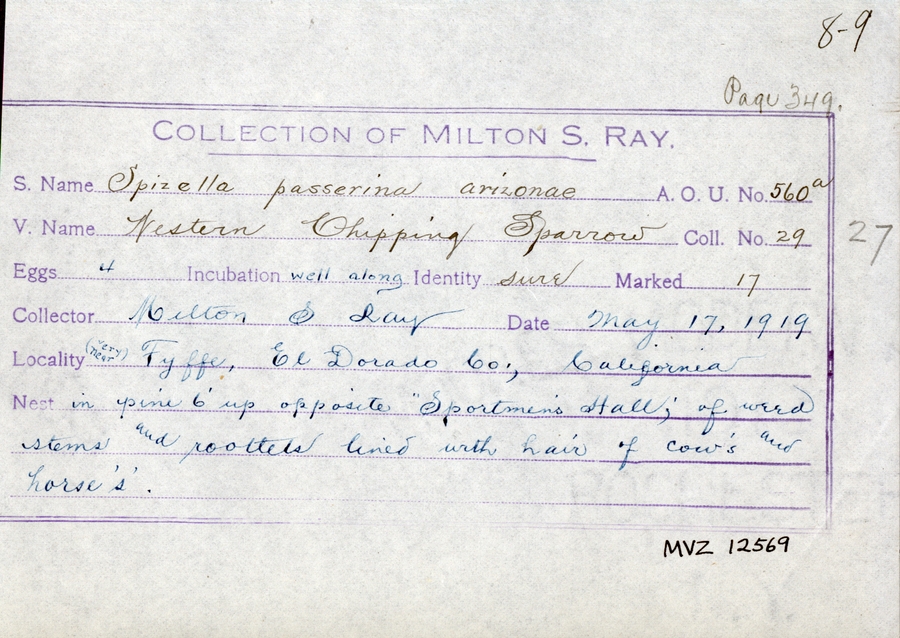 8-9
Page 349.
COLLECTION OF MILTON S. RAY.
S. Name Spizella passerina arizonae A. O. U. No. 560a
V. Name Western Chipping Sparrow Coll. No. 29 27
Eggs 4 Incubation well along Identity sure Marked 17
Collector Milton S Ray Date May 17, 1919
Locality (very near) Fyffe, El Dorado Co., California
Nest in pine 6' up opposite "Sportmen's Hall; of weed
stems and roottets lined with hair of cow's and
horse's.
MVZ 12569